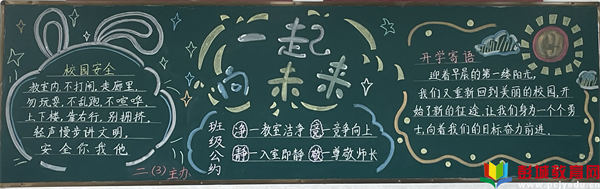 校园安全
教室内,不打闹,走廊里,
勿玩耍,不乱跑,不喧哗,
上下楼,靠右行,别拥挤,
轻声慢步讲文明,
安全你我他
二(3)主办
一起
向未来
班级公约
净—教室洁净 竞—竞争向上
静—入室即静 敬—尊敬师长
开学寄语
迎着早晨的第一缕阳光,
我们又重新回到美丽的校园,开
始了新的征途,让我们身为一个个勇
士,向着我们的目标奋力前进.